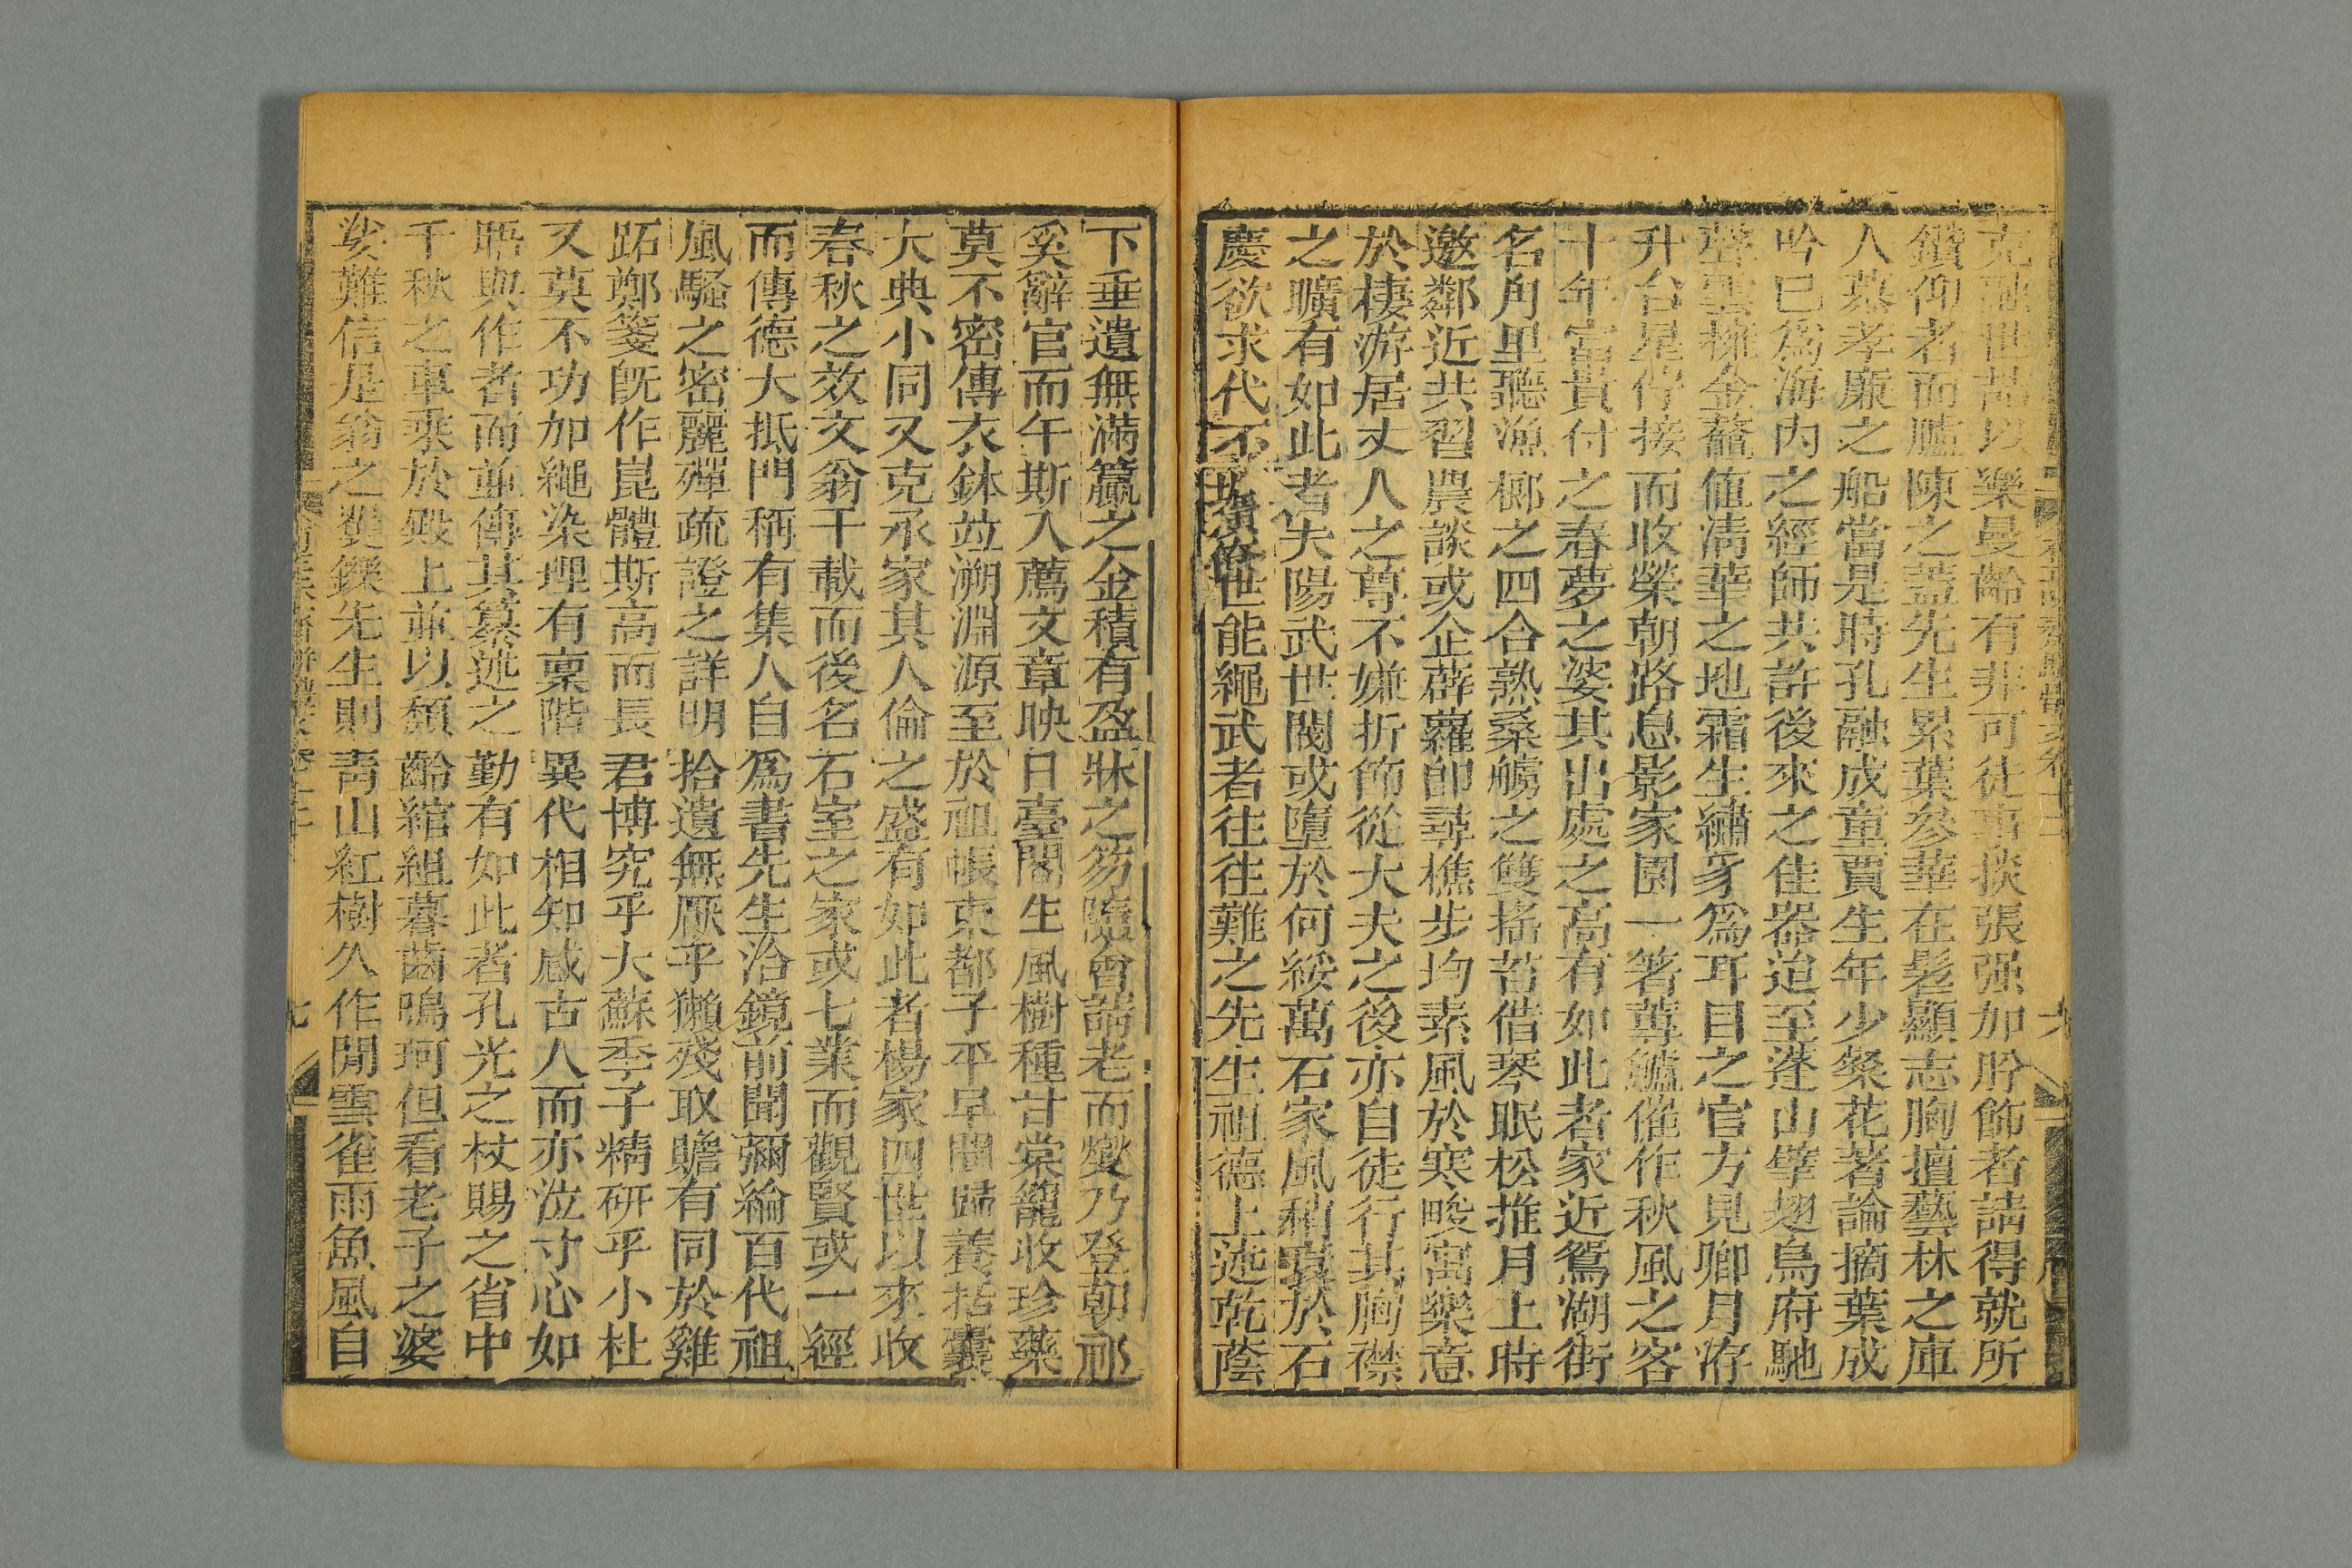 克融世喆以樂曼齡有非可徒事掞張强加肸飾者請得就所
鑽仰者而臚陳之蓋先生累葉參華在髫顯志胸擅藝林之庫
人慕孝廉之船當是時孔融成童賈生年少粲花著論摘葉成
吟已爲海内之經師共許後來之佳器迨至蓬山擘翅鳥府馳
聲墨擁金鼇值淸華之地霜生繡豸爲耳目之官方見卿月洊
升台星佇接而收榮朝路息影家園一箸蓴鱸催作秋風之客
十年富貴付之春夢之婆其出處之高有如此者家近鴛湖街
名角里聽漁榔之四合熟桑觮之雙搖苔借琴眠松推月上時
邀鄰近共習農談或企薜蘿卽尋樵步均素風於寒畯寓樂意
於棲游居丈人之尊不嫌折節從大夫之後亦自徒行其胸襟
之曠有如此者夫陽武世閥或墮於何綏萬石家風稍衰於石
慶欲求代不 世能繩武者往往難之先生祖德上延乾蔭
下垂遺無滿籯之金積有盈牀之笏隨會請老而燮乃登朝祁
奚辭官而午斯入薦文章映日臺閣生風樹種甘棠籠收珍藥
莫不密傳衣鉢竝溯淵源至於祖帳東都子平早閟歸養括囊
大典小同又克承家其人倫之盛有如此者楊家四世以來收
春秋之效文翁千載而後名石室之家或七業而觀賢或一經
而傳德大抵門稱有集人自爲書先生治鏡前聞彌綸百代祖
風騷之密麗殫疏證之詳明拾遺無厭乎獺殘取贍有同於雞
跖鄭箋旣作崑體斯高而長君博究乎大蘇季子精研乎小杜
又莫不功加繩染理有稟階異代相知感古人而亦泣寸心如
晤與作者而竝傳其纂述之勤有如此者孔光之杖賜之省中
千秋之車乘於殿上並以頹齡綰組暮齒鳴珂但看老子之婆
娑難信是翁之矍鑠先生則靑山紅樹久作閒雲雀雨魚風自